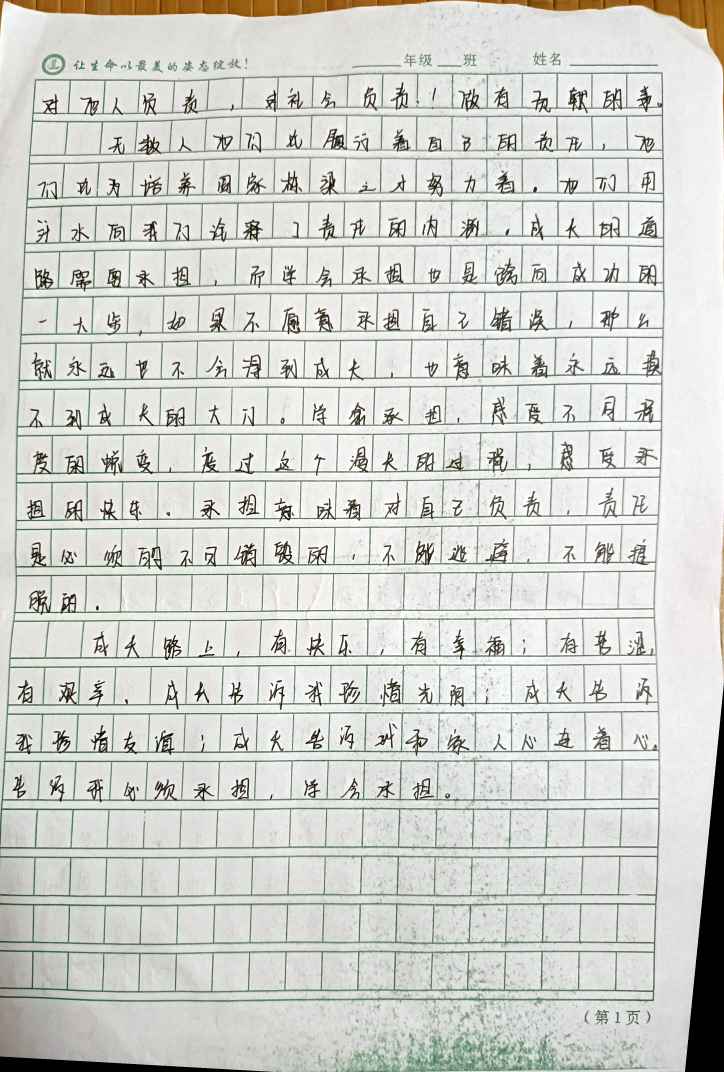 让生命以最美的姿态绽放!
年级 班 姓名
对他人负责,对社会负责!做有贡献的事。
无数人他们比履行着自己的责任,他
们比为培养国家栋梁之才努力着。他们用
汗水向我们诠释了责任的内涵。成长的道
路需要承担,而学会承担也是跨向成功的
一大步,如果不愿意承担自己错误,那么
就永远也不会得到成长,也意味着永远看
不到成长的大门。学会承担,感度不同程
度的蜕变,度过这个漫长的过程,感度承
担的快乐。承担意味着对自己负责,责任
是必须的不可销毁的,不能逃避,不能推
脱的。
成长路上,有快乐,有幸福;有苦涩,
有艰辛、成长告诉我珍惜光阴;成长告诉
我珍惜友谊;成长告诉我和家人心连着心。
告诉我必须承担,学会承担。
(第1页)